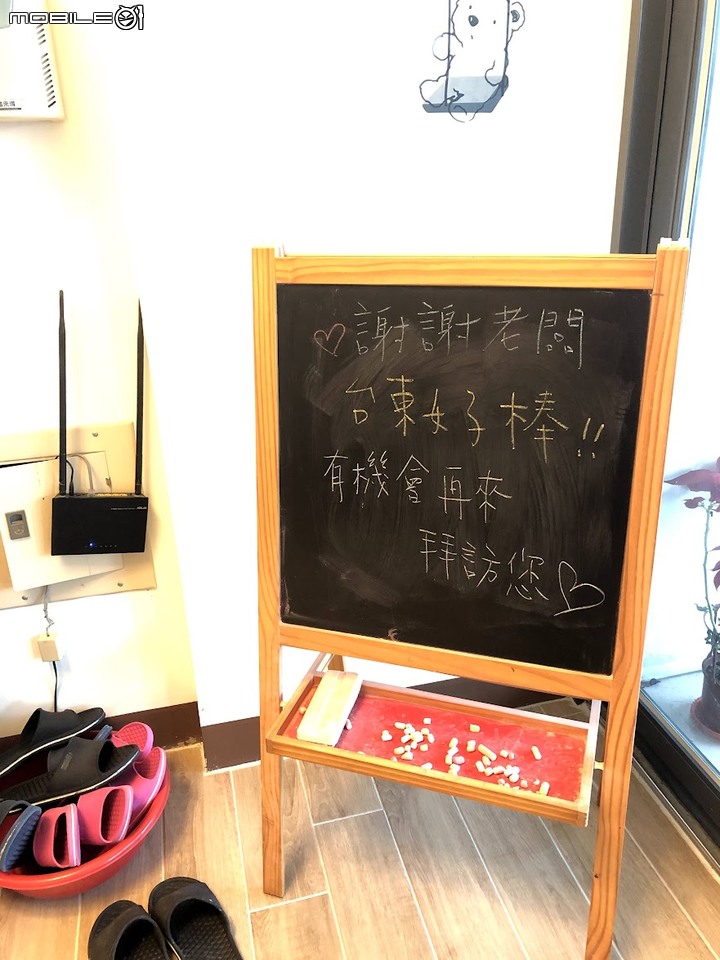 MOBILE01
謝謝老闆
台東女子棒!!
有機會再來
拜訪您